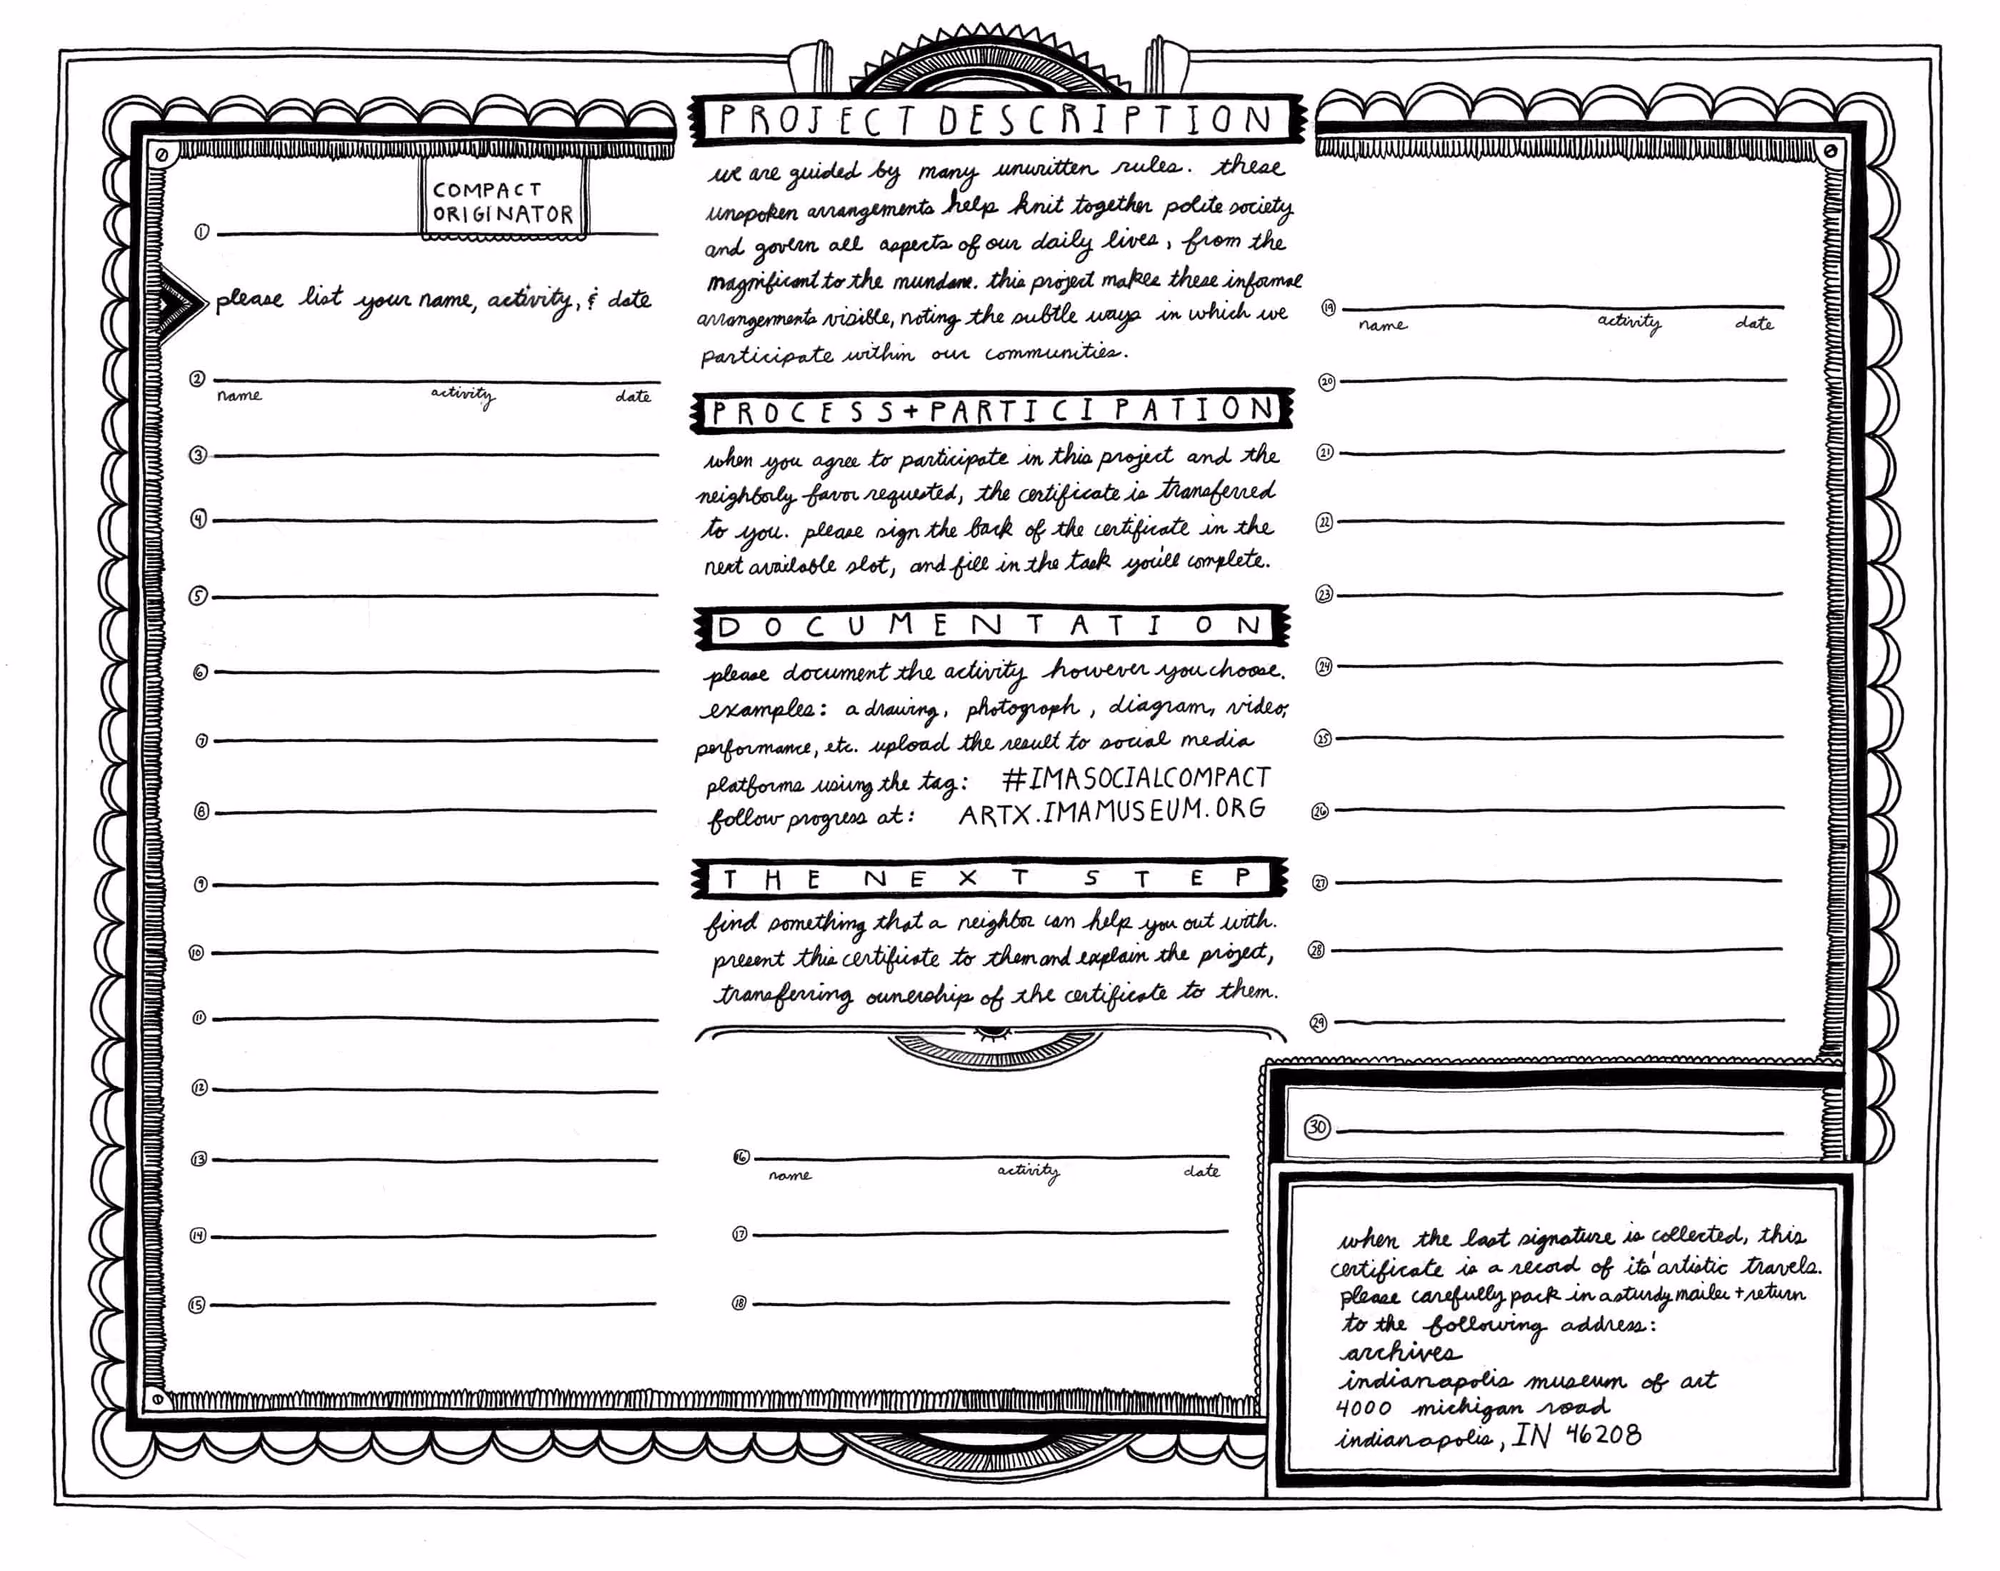 COMPACT
ORIGINATOR
1
please list your name, activity, & date
2
name activity date
3
4
5
6
7
8
9
10
11
12
13
14
15
PROJECT DESCRIPTION
we are guided by many unwritten rules. these
unspoken arrangements help knit together polite society
and govern all aspects of our daily lives, from the
magnificant to the mundane. this project makes these informal
arrangements visible, noting the subtle ways in which we
participate within our communities.
PROCESS+PARTICIPATION
when you agree to participate in this project and the
neighborly favor requested, the certificate is transferred
to you. please sign the back of the certificate in the
next available slot, and fill in the task you'll complete.
DOCUMENTATION
please document the activity however you choose.
examples: a drawing, photograph, diagram, video,
performance, etc. upload the result to social media
platforms using the tag: #IMASOCIALCOMPACT
follow progress at: ARTX.IMAMUSEUM.ORG
THE NEXT STEP
find something that a neighbor can help you out with.
present this certificate to them and explain the project,
transferring ownership of the certificate to them.
16
name activity date
17
18
19
name activity date
20
21
22
23
24
25
26
27
28
29
30
when the last signature is collected, this
certificate is a record of its' artistic travels.
please carefully pack in a sturdy mailer + return
to the following address:
archives
indianapolis museum of art
4000 michigan road
indianapolis, IN 46208